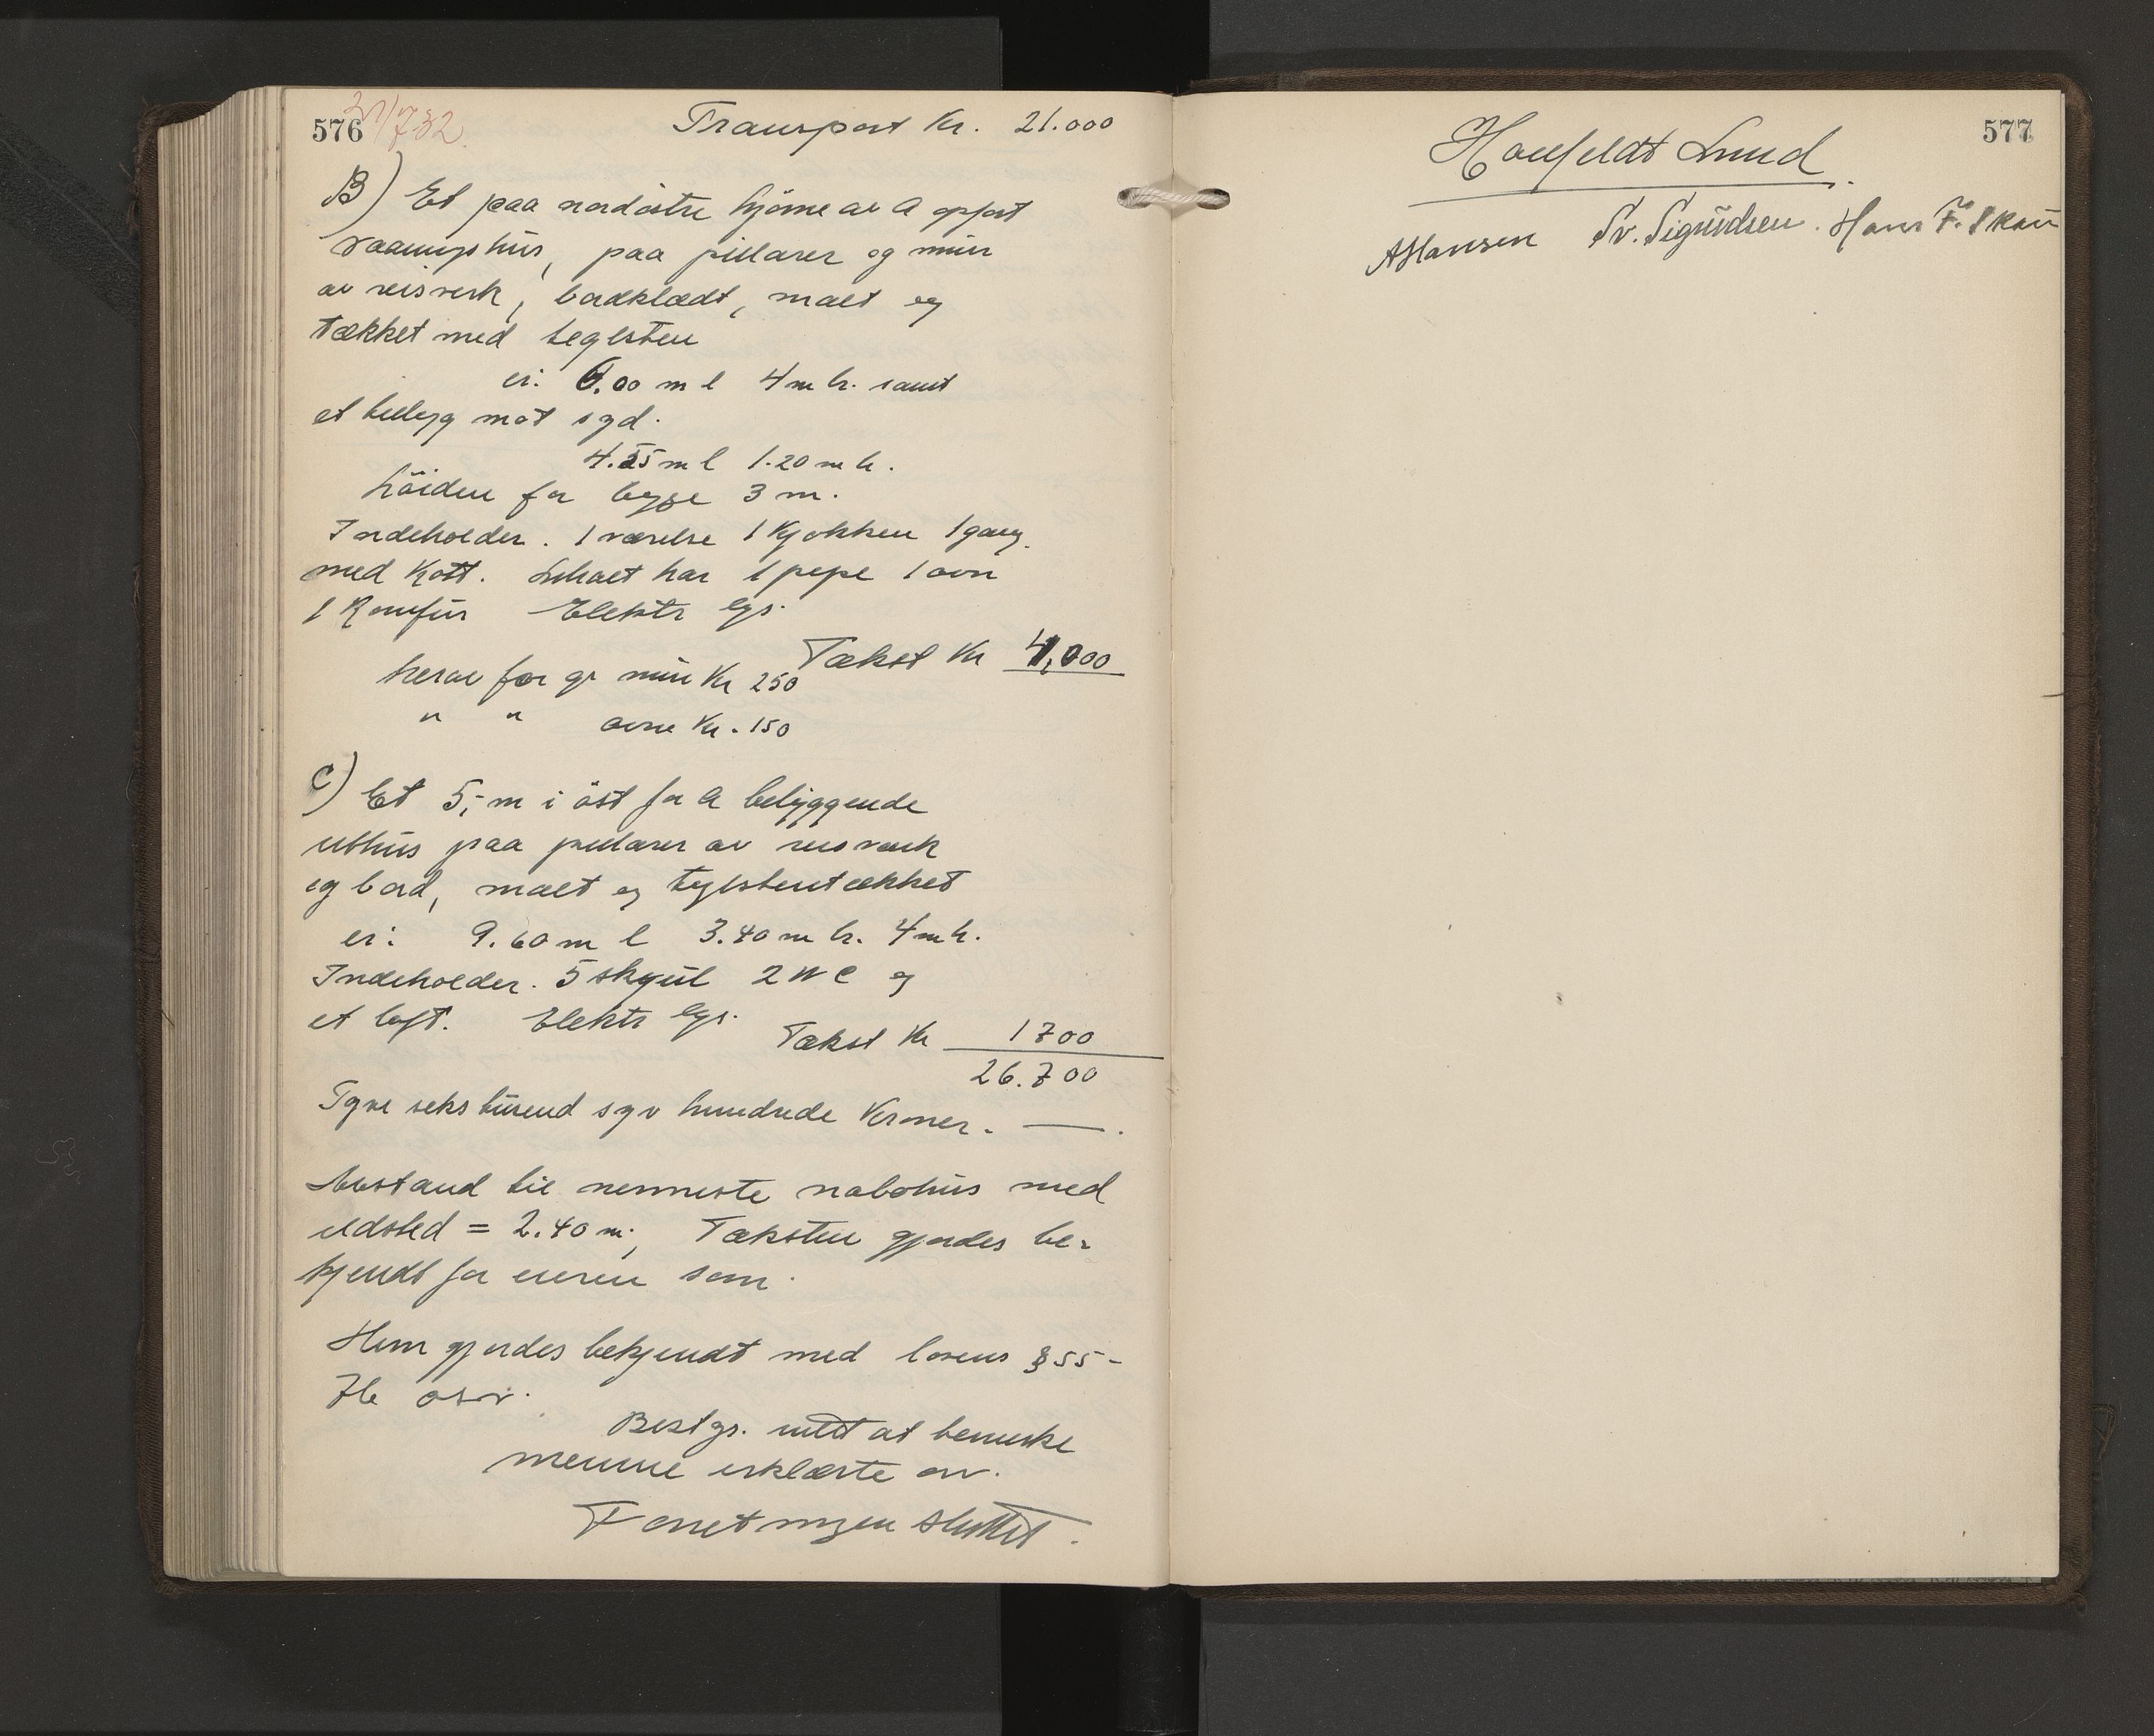 576
Transport Kr. 21.000
B) Et paa nordöstre hjörne av A opfört
vaaningshus, paa pillarer og mur
av reisverk, bordklædt, malt og
tækket med teglsten
er: 6.00 m l 4 m br. samt
et tilbygg mot syd.
4.55 m l 1.20 m br.
höiden for begge 3 m.
Indeholder. 1 værelse 1 Kjökken 1 gang
med Kott. har 1 pipe 1 ovn
1 Komfur Elektr lys.
Takst Kr 4,000
herav for gr mur Kr 250
" " ovne Kr. 150
C) Et 5,- m i öst for A beliggende
uthus paa pillarer av reisverk
og bord, malt og teglstentækket
er: 9.60 m l 3.40 m br. 4 m h.
Indeholder. 5 skjul 2 WC og
et loft. Elektr lys.
Takst Kr 1700
26.700
Tyve seks tusend syv hundrede Kroner. —.
Avstand til nermeste nabohus med
ildsted = 2.40 m, Taksten gjordes be-
kjendt for eieren som
Hun gjordes bekjendt med lovens § 55-
76 osv.
Bestgs. intet at bemerke
mennene erklærte osv.
Forretningen sluttet.
577
Houfeldt Lund
A Hansen Sv. Sigurdsen. Hans F. Skau